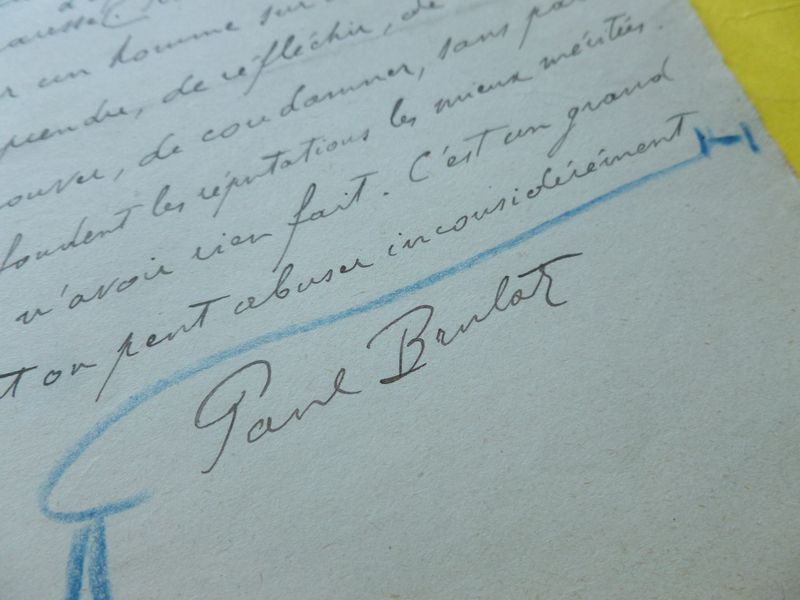 un homme sur
de réfléchir, de
prendre, de condamner, sans
fondent les réputations les mieux méritées.
n'avoir rien fait. C'est un grand
t on peut abuser inconsidérément
Paul Brulat